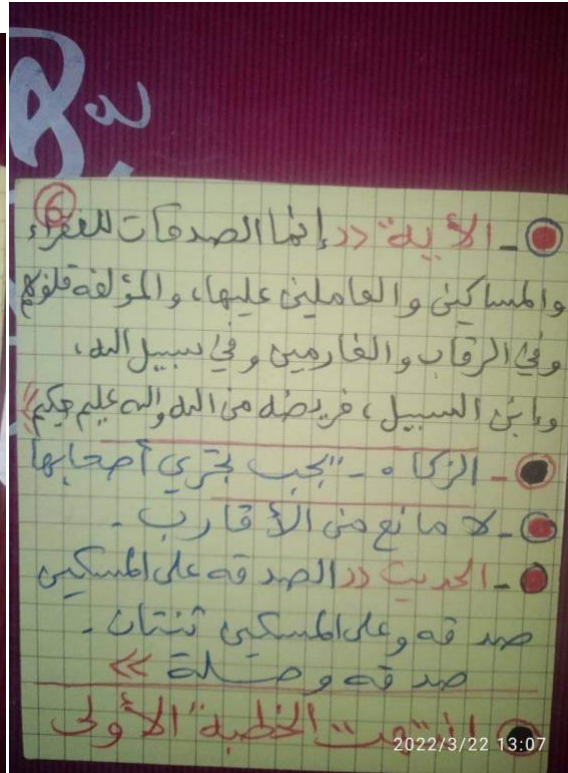 6
- الأية << إنما الصدقات للفقراء
والمساكين والعاملين عليها، والمؤلفة قلوبهم
وفي الرقاب والغارمين وفي سبيل الله،
وابن السبيل، فريضة من الله والله عليم حكيم >>
- الزكاة - "يجب تحري أصحابها
- لا مانع من الأقارب -
- الحديث << الصدقه على المسكين
صدقه وعلى المسكين ثنتان -
صدقه وصلة >>
انتهت الخطبة الأولى
2022/3/22 13:07